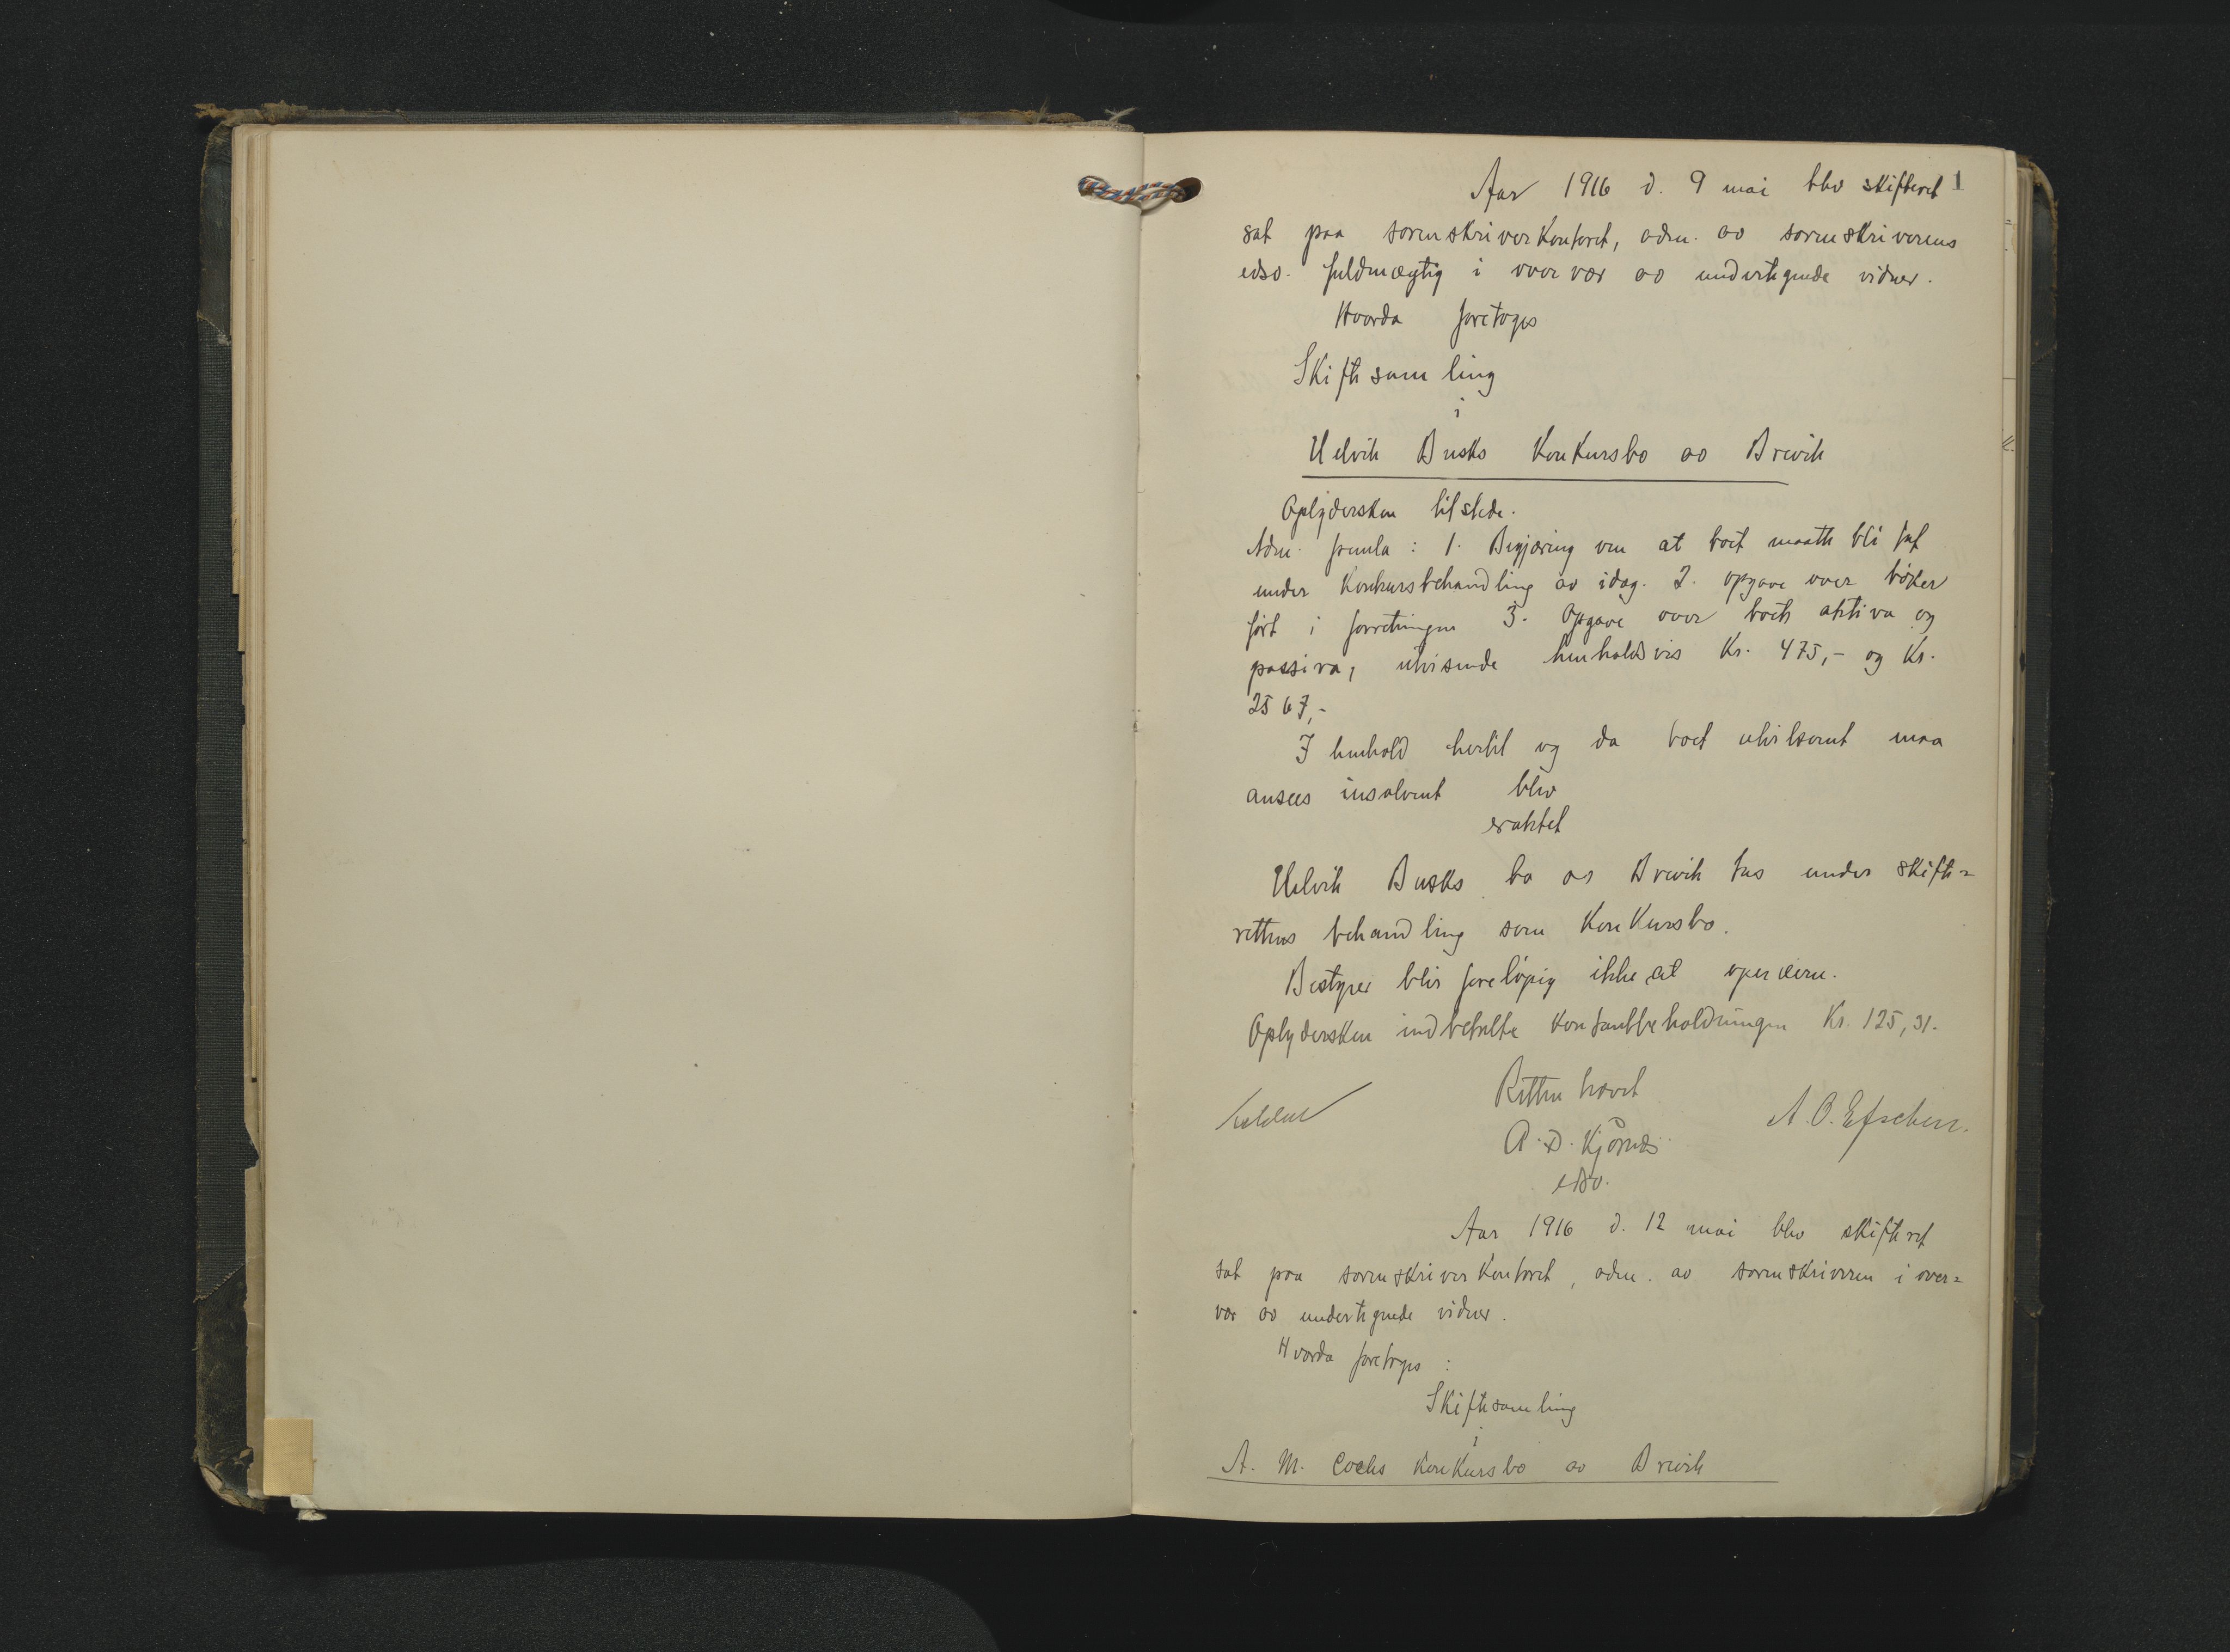 1
Aar 1916 d. 9 mai blev skifteret
sat paa sorenskriverkontoret, adm. av sorenskriverens
edsv. fuldmægtig i overvær av undertegnede vidner.
Hvorda foretoges
Skiftesamling
i
Ulrik Busks Konkursbo av Brevik
Oplydersken tilstede.
Adm. fremla: 1. Begjæring om at boet maatte bli tat
under Konkursbehandling av idag. 2. opgave over bøker
ført i forretningen 3. Opgave over boets aktiva og
passiva, utvisende henholdsvis Kr. 475,- og Kr.
2567,-
I henhold hertil og da boet utvilsomt maa
ansees insolvent blev
eraktet
Ulrik Busks bo av Brevik tas under skifte=
rettens behandling som Konkursbo.
Bestyrer blir foreløpig ikke at opnævne.
Oplydersken indbetalte Kontantbeholdningen Kr. 125,31.
Retten hævet
A. O. Efschen.
A. D. Kjørnes
edsv.
Aar 1916 d. 12 mai blev skifteret
sat paa sorenskriverkontoret, adm. av sorenskriveren i over=
vær av undertegnede vidner.
Hvorda foretoges:
Skiftesamling
i
A. M. Cochs Konkursbo av Brevik